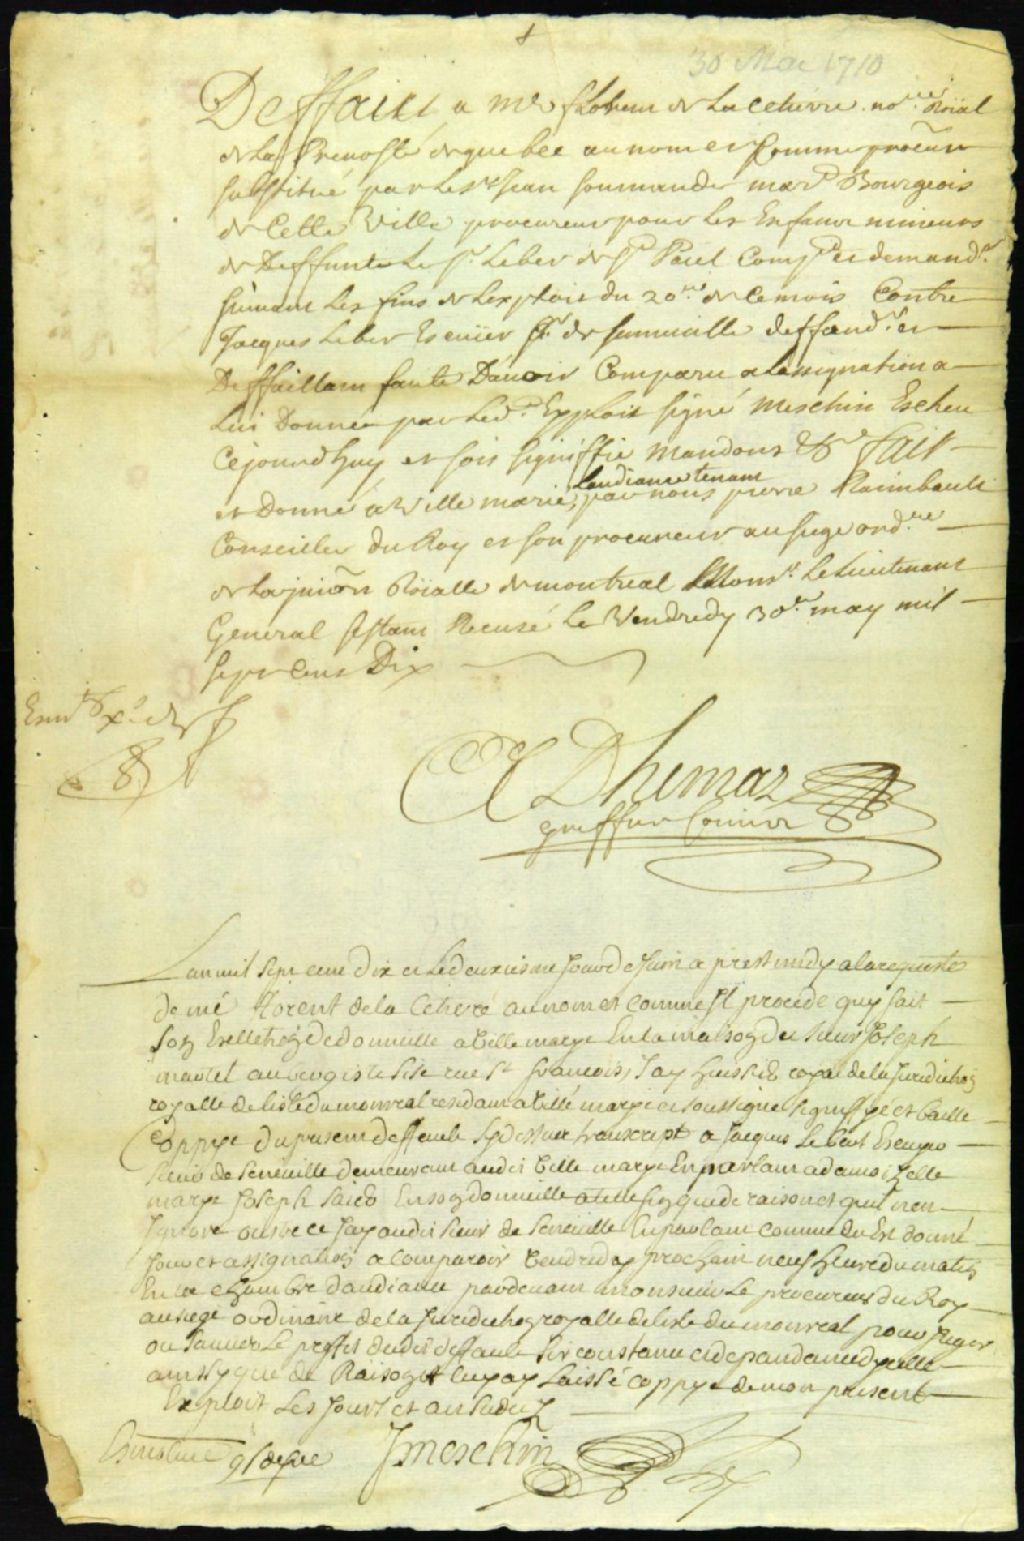 30 Mai 1710
Deffaut a me florent de la Cetiere nore. Roïal
de la Prevosté de quebec au nom et Comme procur
substitué par le sr Jean soumande mard Bourgeois
de Cette Ville procureur pour les Enfans mineurs
de Deffunte le sr. Leber de st Paul Compt et demandr.
suivant les fins de lexploit du 20me de ce mois Contre
Jacques Leber Escuier sr. de senneville deffandr. et
Deffaillant faute Davoir Comparu a lassignation a
Lui Donnée par led. Exploit signé Meschin Escheu
Cejourdhuy et sois signiffié Mandons &c fait
et Donné a Ville marie, laudiance tenant par nous pierre Raimbault
Conseiller du Roy et son procureur au siege ordre
de la juriōn Roialle de montreal Monsr. le Lieutenant
General sestant Recusé le Vendredy 30me may mil
sept cens Dix
Adhemar
greffier Commis
Lan mil sept cent dix et le deuxiesme jour de juin apres midy a la requeste
de mé florent de la Cetiere au nom et comme Il procede quy fait
son Ellection de domicille a Ville marye En la maison du sieur Joseph
martel aubergiste sise rue st francois, Jay huissié royal de la Juridiction
royalle de lisle du monreal residant a Ville marye et soussigné signiffyé et baille
Coppye du present deffault sy dessus transcript a Jacques Le bert Escuyer
sieur de senneville demeurant audit Ville marye En parlant a damoizelle
marye Joseph En son domicille a telle fin que de raison et quil nen
Ignore outre ce Jay audit sieur de senneville En parlant comme dit Est donné
Jour et assignation a comparoir Vendredy prochain neuf heure du matin
En la chambre daudiance pardevant monsieur le procureur du Roy
au siege ordinaire de la Juridiction royalle de lisle du monreal pour Juger
le proffit dudit deffault sirconstance et depandance dycelle
ainsy que de Raison et luy ay laissé coppye de mon present
Exploit Les Jour et an susdit
JMeschin